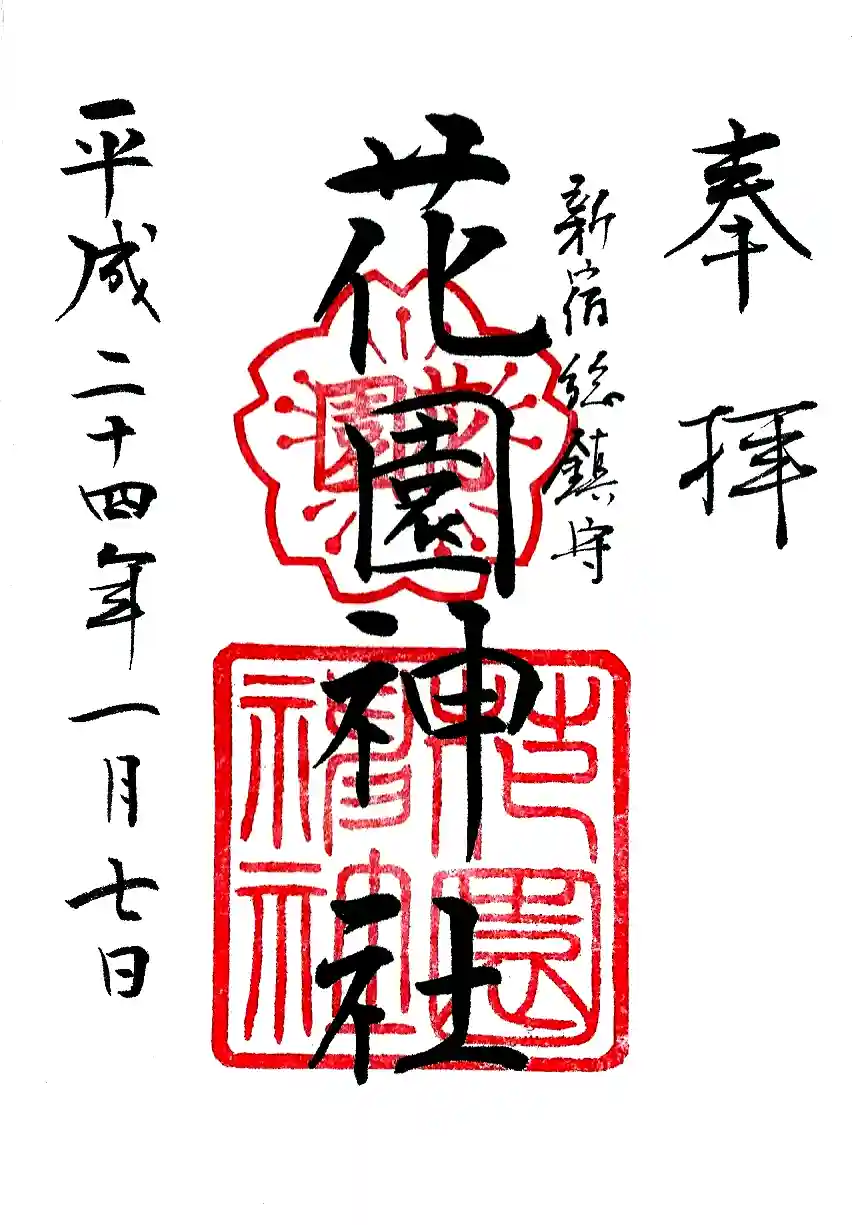 奉拝
新宿総鎮守
花園神社
花園
花園神社
平成二十四年一月七日